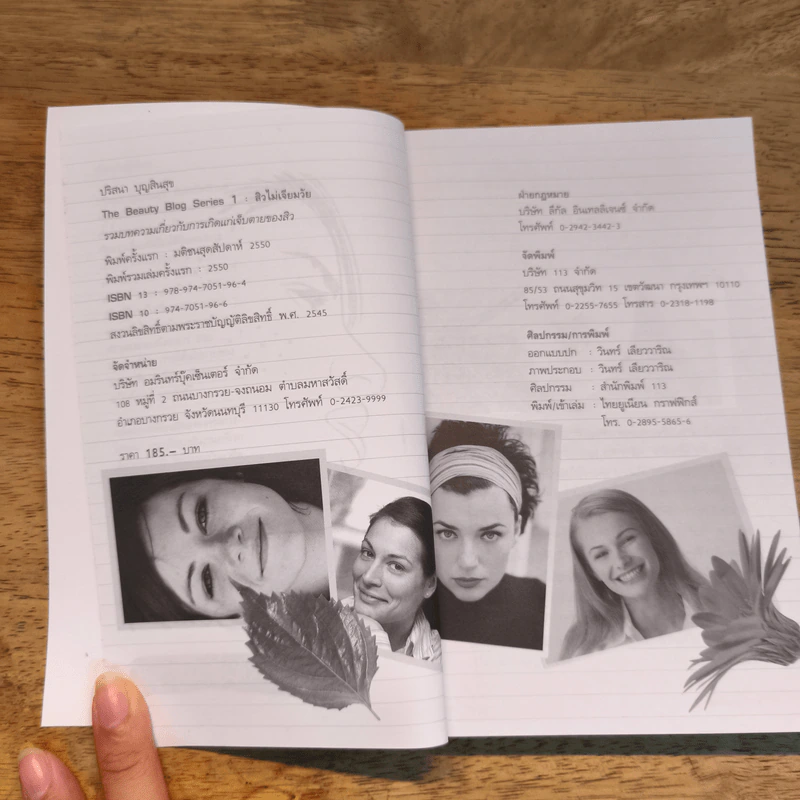 ปริสนา บุญสินสุข
The Beauty Blog Series 1 : สิวไม่เจียมวัย
รวมบทความเกี่ยวกับการเกิดแก่เจ็บตายของสิว
พิมพ์ครั้งแรก : มติชนสุดสัปดาห์ 2550
พิมพ์รวมเล่มครั้งแรก : 2550
ISBN 13 : 978-974-7051-96-4
ISBN 10 : 974-7051-96-6
สงวนลิขสิทธิ์ตามพระราชบัญญัติลิขสิทธิ์ พ.ศ. 2545
จัดจำหน่าย
บริษัท อมรินทร์บุ๊คเซ็นเตอร์ จำกัด
108 หมู่ที่ 2 ถนนบางกรวย-จงถนอม ตำบลมหาสวัสดิ์
อำเภอบางกรวย จังหวัดนนทบุรี 11130 โทรศัพท์ 0-2423-9999
ราคา 185.- บาท
ฝ่ายกฎหมาย
บริษัท ลีกัล อินเทลลิเจนซ์ จำกัด
โทรศัพท์ 0-2942-3442-3
จัดพิมพ์
บริษัท 113 จำกัด
85/53 ถนนสุขุมวิท 15 เขตวัฒนา กรุงเทพฯ 10110
โทรศัพท์ 0-2255-7655 โทรสาร 0-2318-1198
ศิลปกรรม/การพิมพ์
ออกแบบปก : วินทร์ เลียววาริณ
ภาพประกอบ : วินทร์ เลียววาริณ
ศิลปกรรม : สำนักพิมพ์ 113
พิมพ์/เข้าเล่ม : ไทยยูเนียน กราฟฟิกส์
โทร. 0-2895-5865-6